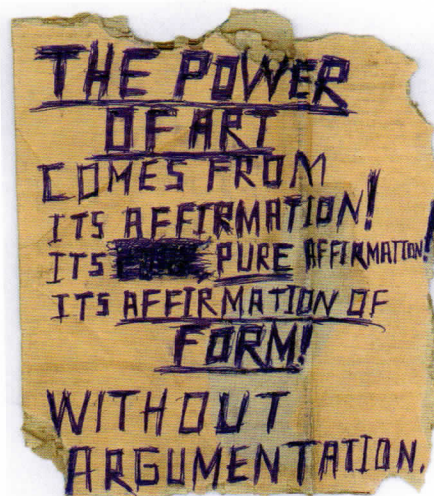 THE POWER
OF ART
COMES FROM
ITS AFFIRMATION!
ITS PURE AFFIRMATION!
ITS AFFIRMATION OF
FORM!
WITHOUT
ARGUMENTATION.